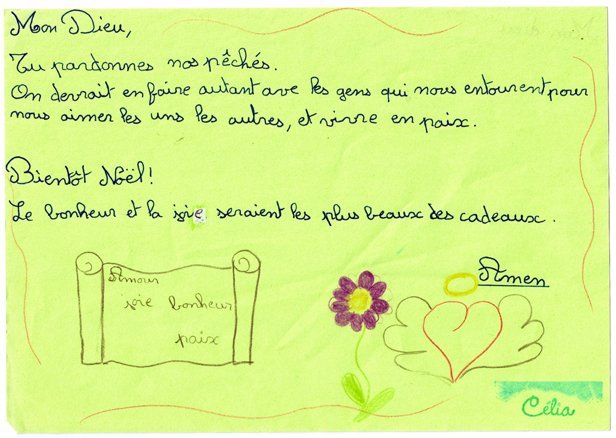 Mon Dieu,
Tu pardonnes nos pêchés.
On devrait en faire autant ave les gens qui nous entourent pour
nous aimer les uns les autres, et vivre en paix.
Bientôt Noël!
Le bonheur et la joie seraient les plus beaux des cadeaux.
Amen
Amour
joie bonheur
paix
Célia